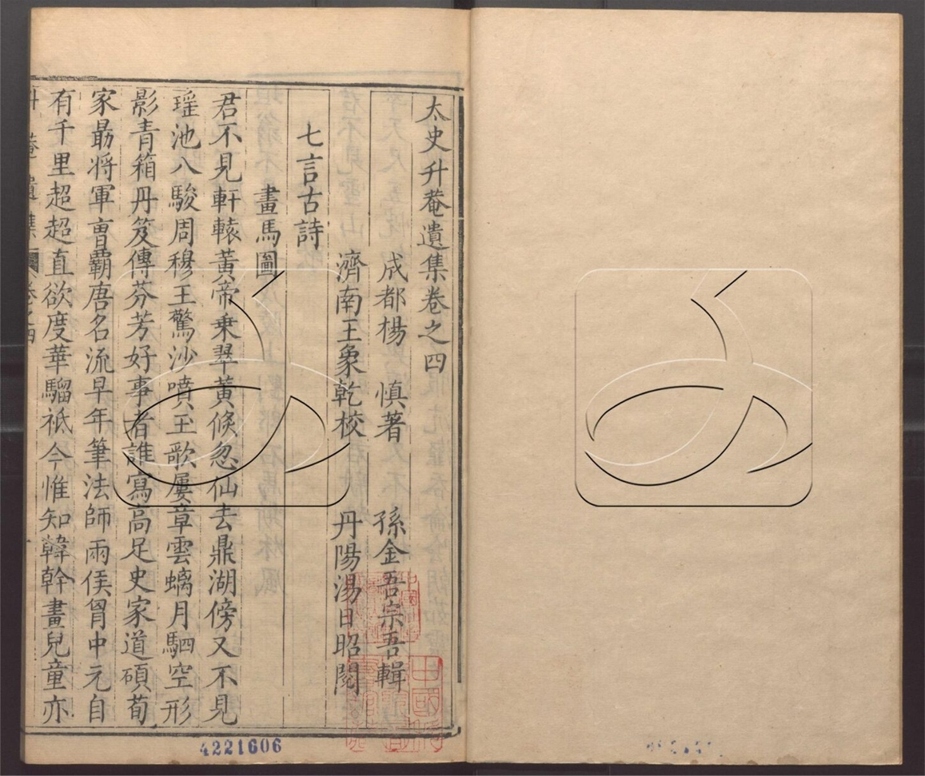 太史升菴遺集卷之四
成都楊 慎著 孫金吾宗吾輯
濟南王象乾校 丹陽湯日昭閱
七言古詩
畫馬圖
君不見軒轅黃帝乘翠黃倏忽仙去鼎湖傍又不見
瑶池八駿周穆王驚沙噴玉歌屢章雲螭月駟空形
影青箱丹笈傳芬芳好事者誰寫高足史家道碩荀
家朂将軍曺霸唐名流早年筆法師兩侯胷中元自
有千里超超直欲度華騮祇今惟知韓幹畫兒童亦
卷之四
4221606